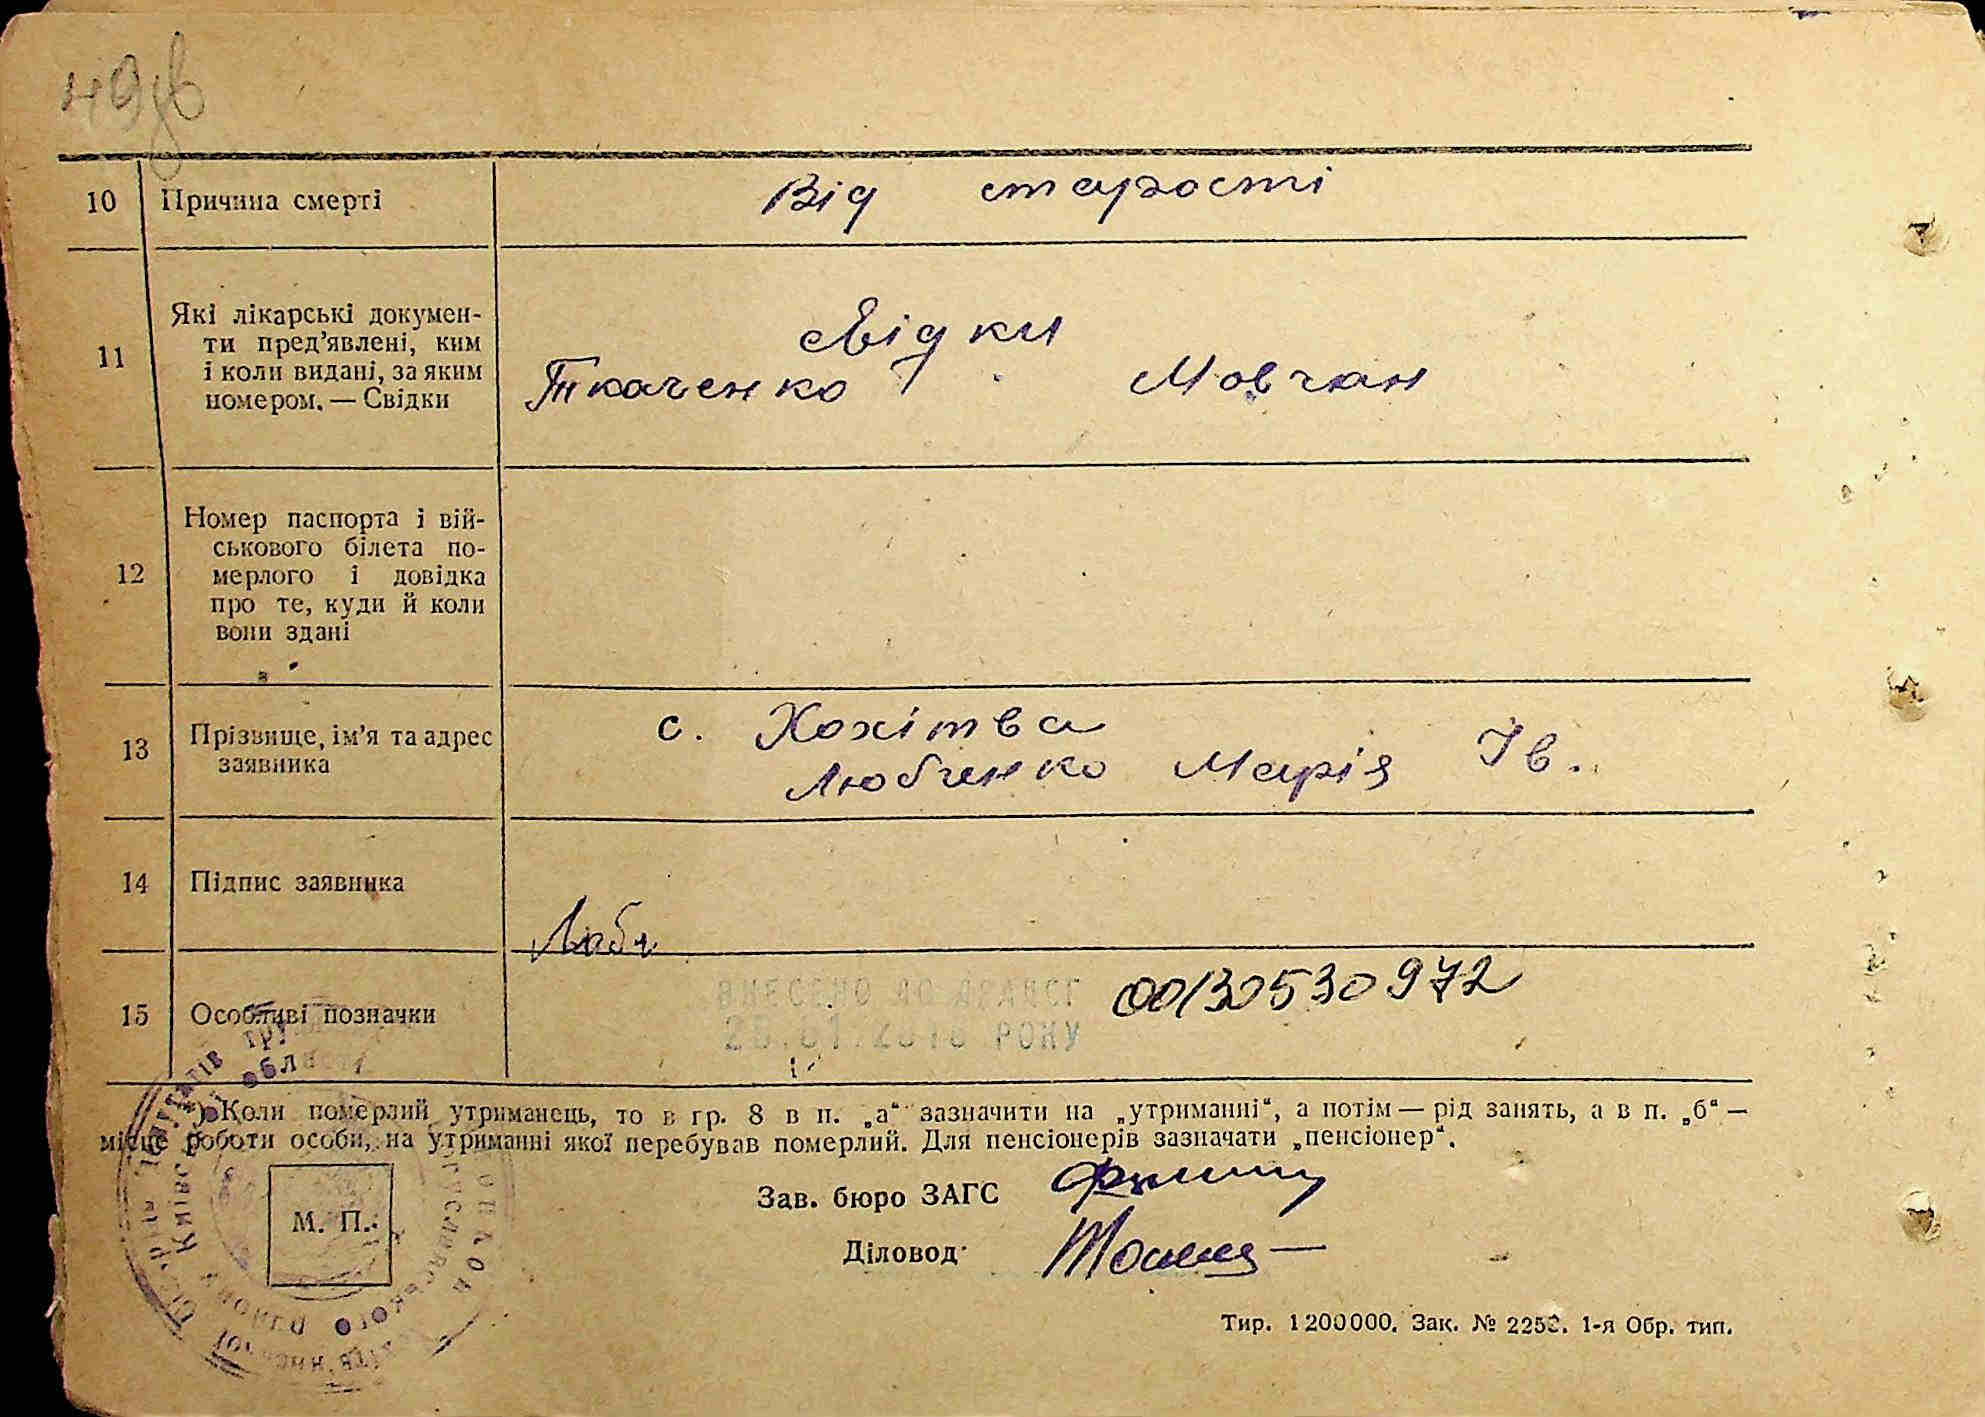 49зв
10 Причина смерті Від старості
11 Які лікарські докумен-
ти пред’явлені, ким
і коли видані, за яким
номером. — Свідки
свідки
Ткаченко Мовчан
12 Номер паспорта і вій-
ськового білета по-
мерлого і довідка
про те, куди й коли
вони здані
13 Прізвище, ім’я та адрес
заявника
с. Хохітва
Любченко Марія Ів.
14 Підпис заявника
Любч
15 Особливі позначки
ВНЕСЕНО ДО ДРАЦСГ
РОКУ
00130530972
*) Коли померлий утриманець, то в гр. 8 в п. „а“ зазначити на „утриманні“, а потім — рід занять, а в п. „б“ —
місце роботи особи, на утриманні якої перебував померлий. Для пенсіонерів зазначати „пенсіонер“.
Зав. бюро ЗАГС
Діловод
М. П.
Тир. 1 200 000. Зак. № 2253. 1-я Обр. тип.